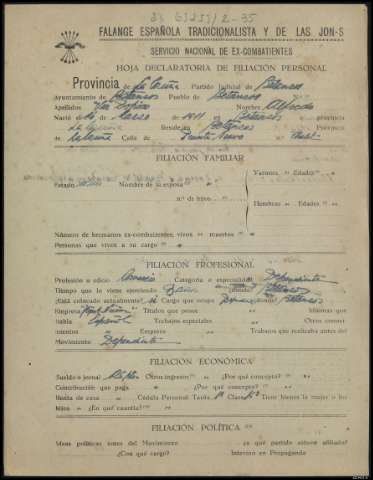 FALANGE ESPAÑOLA TRADICIONALISTA Y DE LAS JON-S
SERVICIO NACIONAL DE EX-COMBATIENTES
HOJA DECLARATORIA DE FILIACIÓN PERSONAL
Provincia de La Coruña Partido Judicial de Betanzos
Ayuntamiento de Betanzos Pueblo de Betanzos
Apellidos Nombre Alfredo
Nació el de Marzo de 1911 en Betanzos Provincia
La Coruña Reside en Betanzos Provincia
La Coruña Calle de Puente Nuevo
FILIACIÓN FAMILIAR
Estado Nombre de su esposa
Varones Edades
n.º de hijos
Hembras Edades
Número de hermanos ex-combatientes, vivos muertos
Personas que viven a su cargo
FILIACIÓN PROFESIONAL
Profesión u oficio Comercio Categoría o especialidad Dependiente
Tiempo que lo viene ejerciendo dónde Betanzos
¿Está colocado actualmente? si Cargo que ocupa Betanzos
Empresa Títulos que posee Idiomas que
habla Español Trabajos especiales Otros conoci-
mientos Empezó Trabajos que realizaba antes del
Movimiento Dependiente
FILIACIÓN ECONÓMICA
Sueldo o jornal Otros ingresos ¿Por qué concepto?
Contribución que paga ¿Por qué concepto?
Renta de casa Cédula Personal Tarifa 1ª Clase Tiene bienes la mujer o los
hijos ¿En qué cuantía?
FILIACIÓN POLÍTICA
Ideas políticas antes del Movimiento ¿a qué partido estuvo afiliado?
¿Con qué cargo? Intervino en Propaganda